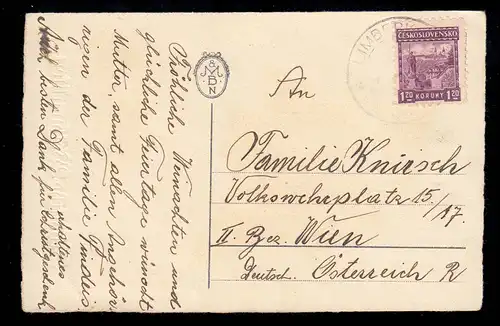 Fröhliche Weinachten und
glückliche Feiertage wünscht
Mutter, samt allen Angehöri
rigen der Familie Findeis.
Auch besten Dank für
erhaltenes
M M
B
N
LIMBER
ČESKOSLOVENSKO
1.20 KORUNY 1.20
An
Familie Knirsch
Volkswehrplatz 15/17.
II. Bez. Wien
Deutsch. Österreich